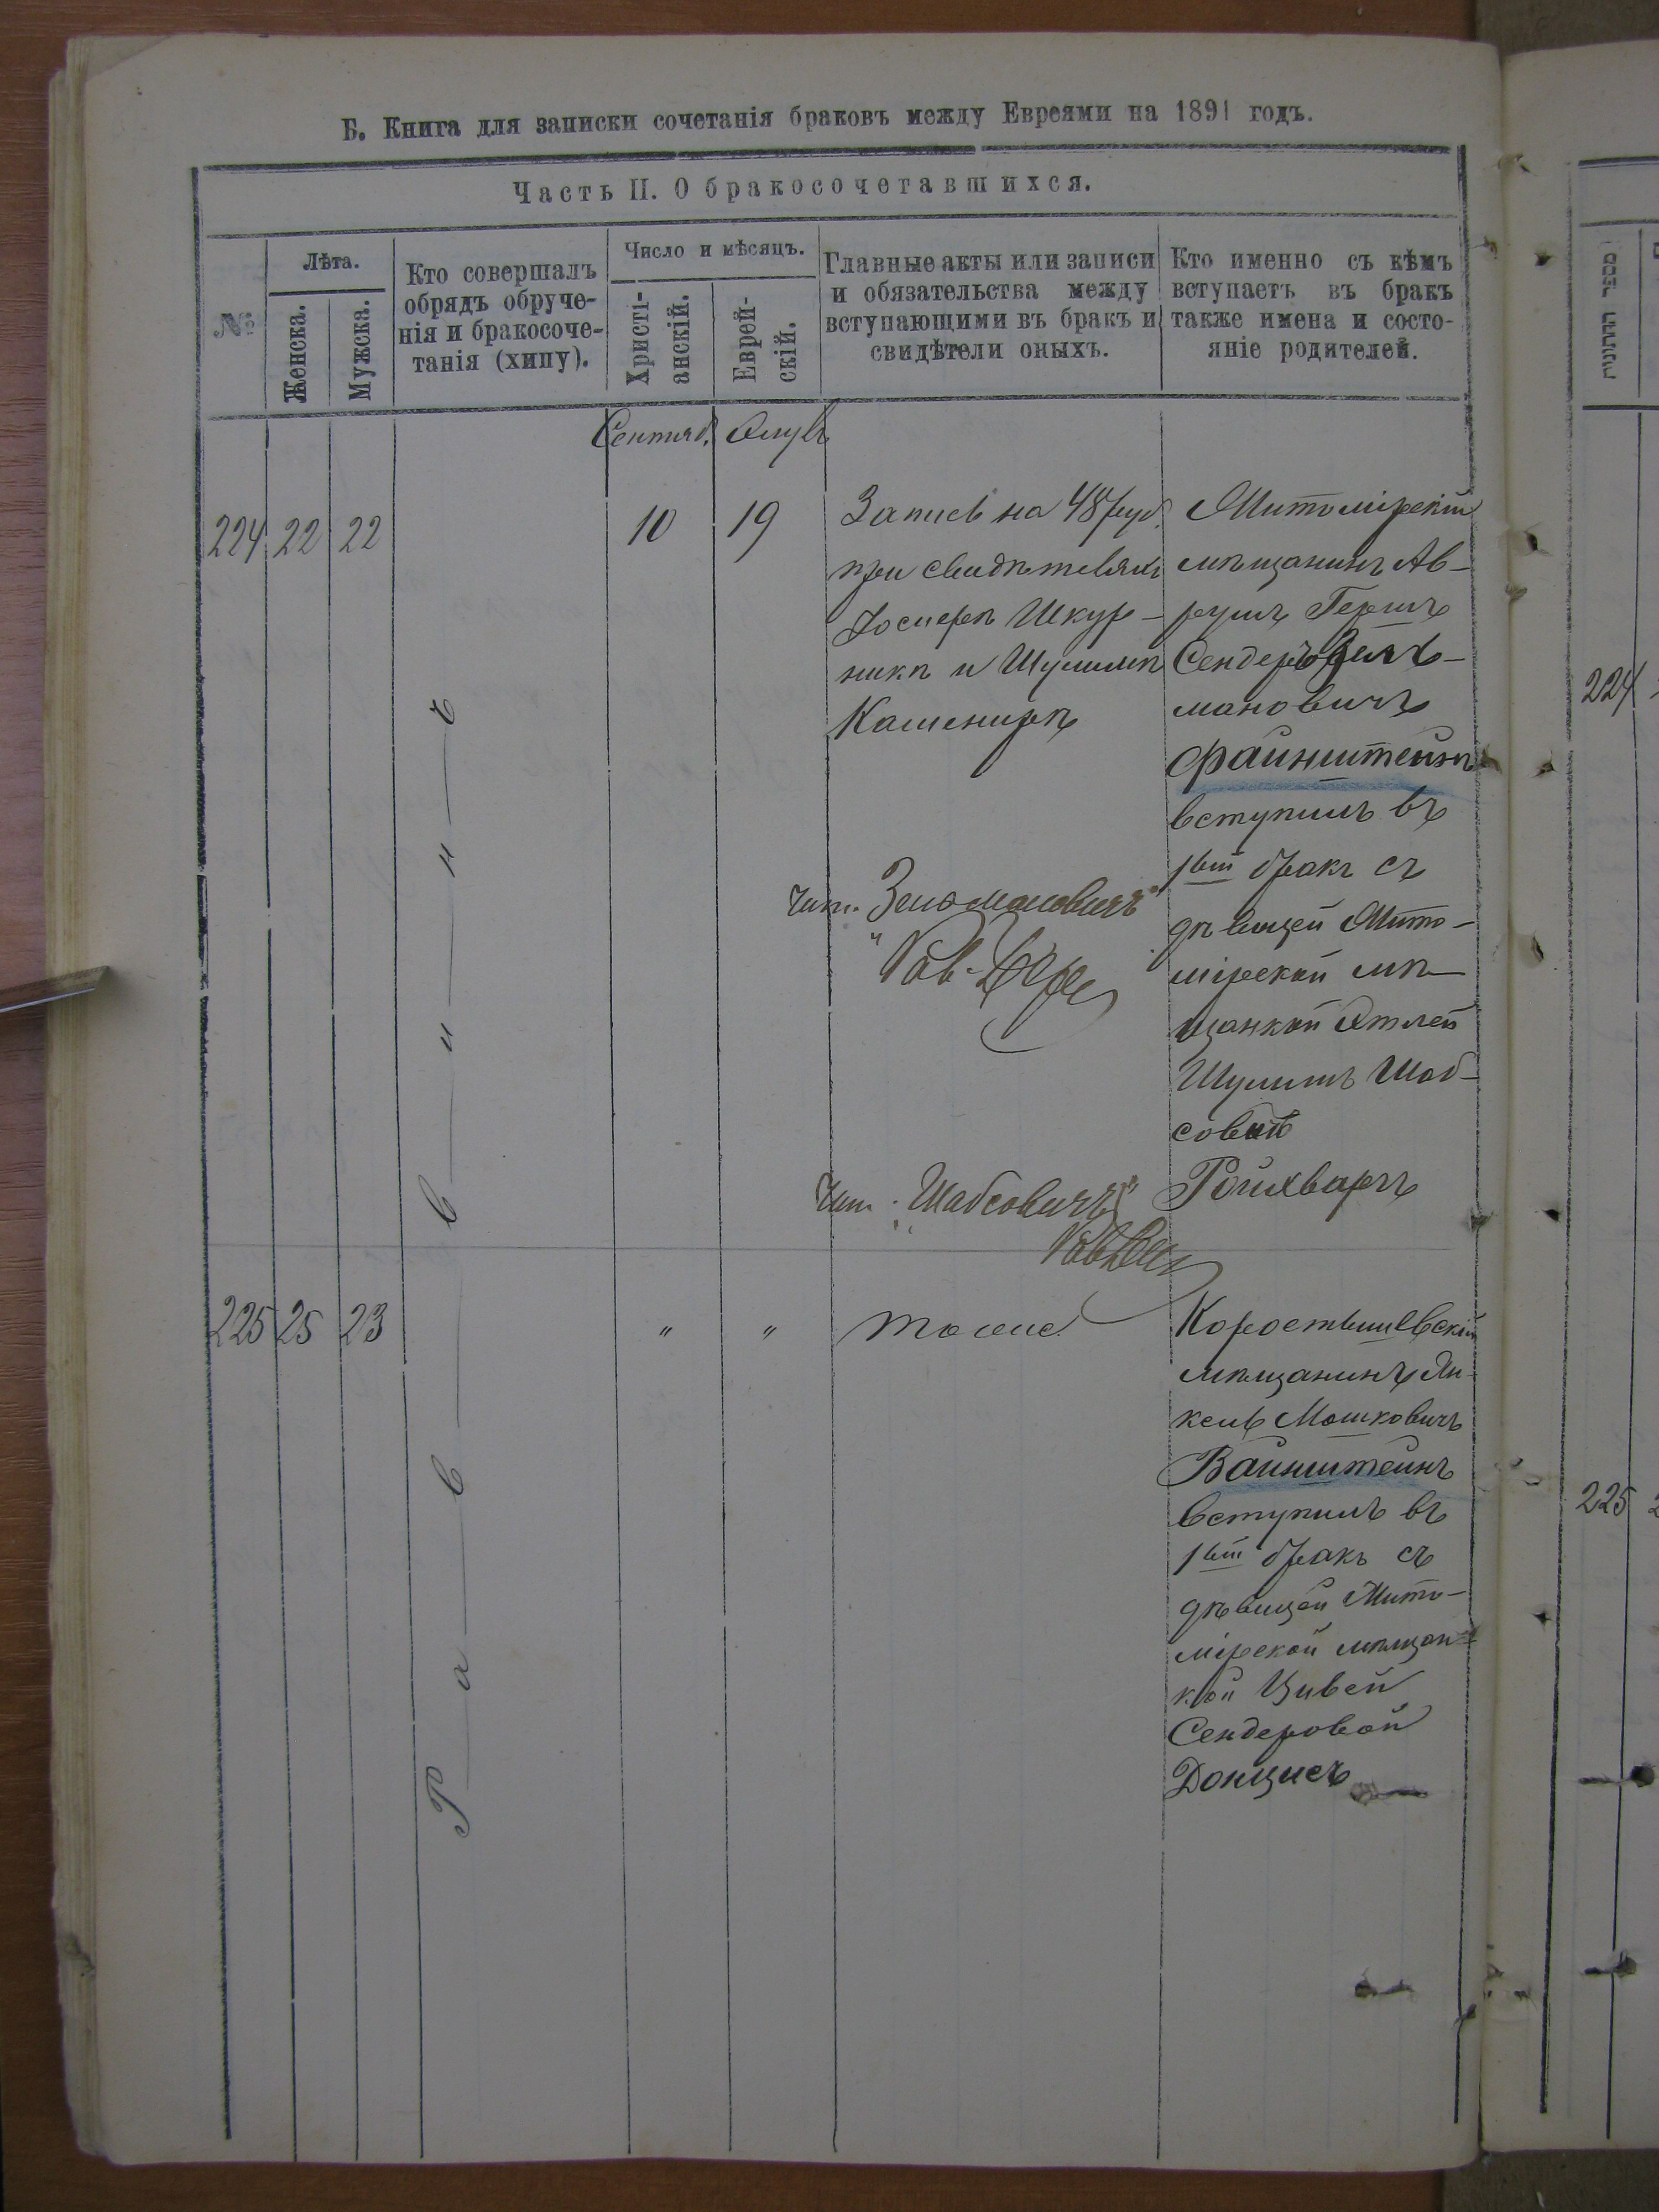 Б. Книга для записки сочетанія браковъ между Евреями на 1891 годъ.
Часть II. О бракосочетавшихся.
№
Лѣта.
Женска.
Мужска.
Кто совершалъ
обрядъ обруче-
нія и бракосоче-
танія (хипу).
Число и мѣсяцъ.
Христі-
анскій.
Еврей-
скій.
Главные акты или записи
и обязательства между
вступающими въ бракъ и
свидѣтели оныхъ.
Кто именно съ кѣмъ
вступаетъ въ бракъ
также имена и состо-
яніе родителей.
Сентяб. Элулъ
224 22 22
10 19
Запись на 48 руб.
при свидѣтеляхъ
Іосифѣ Шкур-
никѣ и Шулимѣ
Кашенирѣ
Житомірскій
мѣщанинъ Ав-
румъ Гершъ
Сендеръ Зель-
мановичъ
Файнштейнъ
вступилъ въ
1ый бракъ съ
дѣвицей Жито-
мірской мѣ-
щанкой Этлей
Шулимъ Шаб-
совой
Ройхваргъ
Чит. "Зельмановичъ"
Рав.
Чит. "Шабсовичъ"
Рав.
Раввинъ
225 25 23
" "
тоже
Коростышевскій
мѣщанинъ Ян-
кель Мошковичъ
Вайнштейнъ
вступилъ въ
1ый бракъ съ
дѣвицей Жито-
мірской мѣщан-
кой Цивей
Сендеровой
Донцисъ
224
225
מספר החתונות